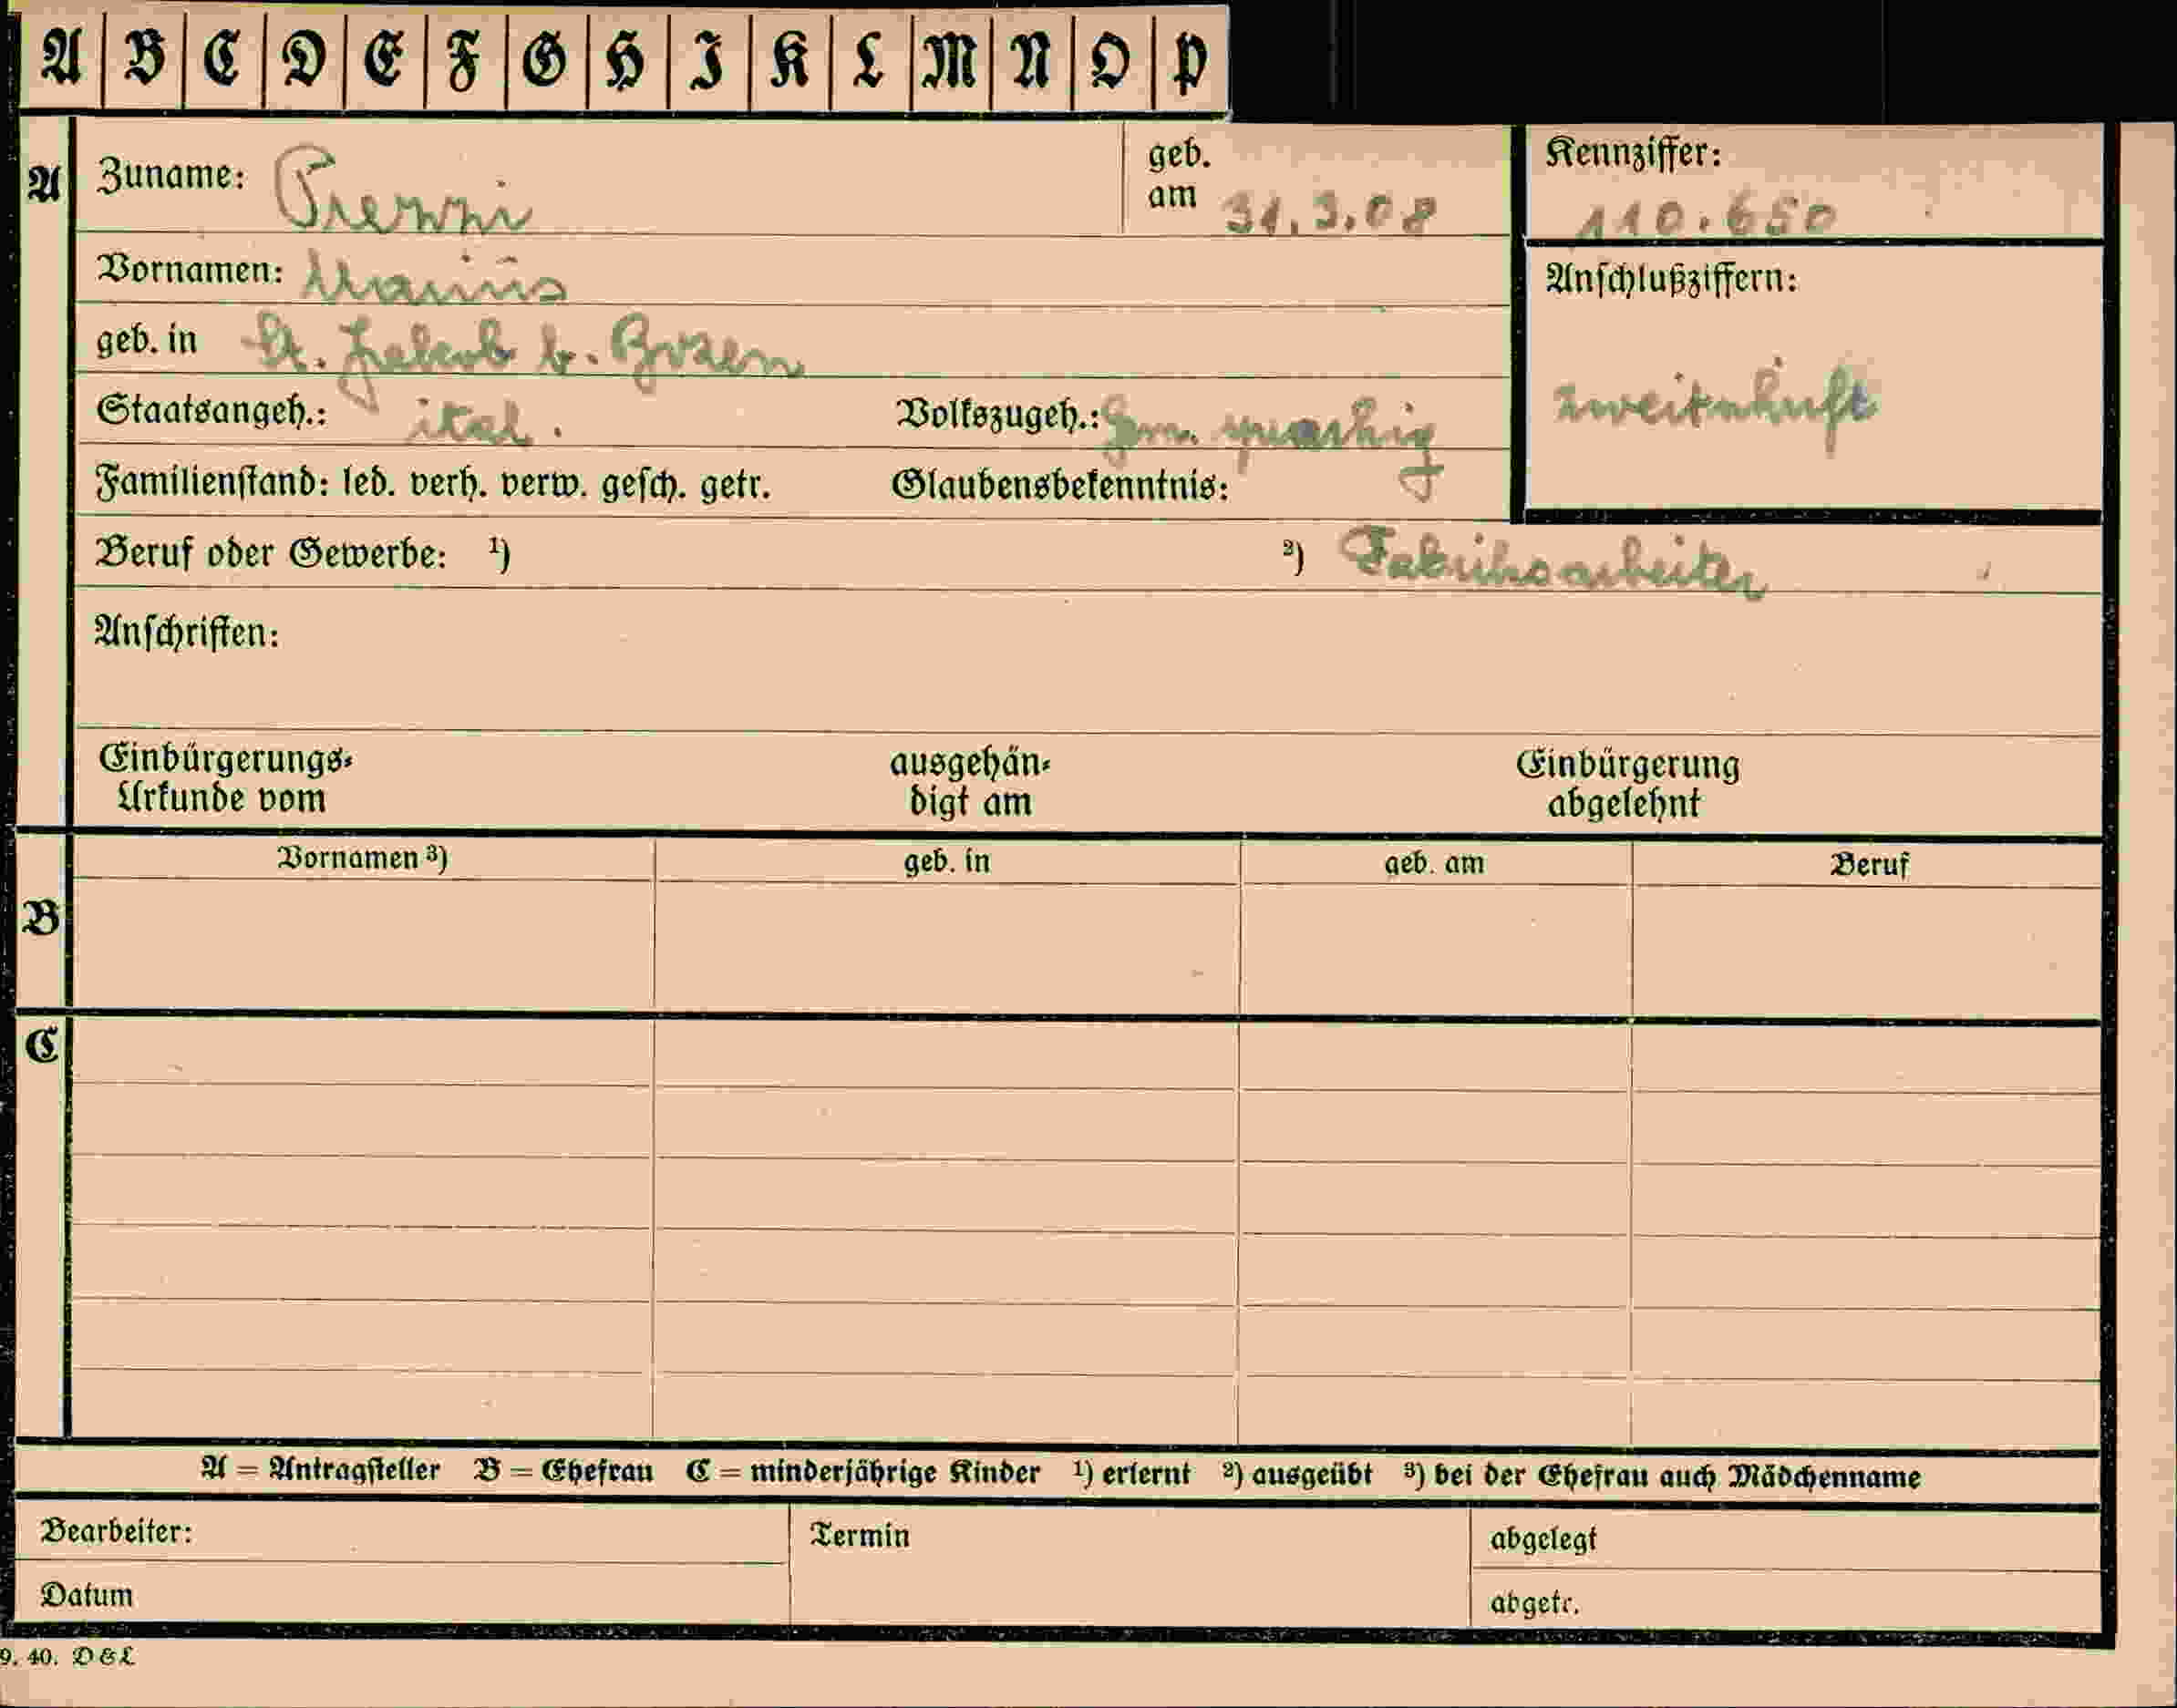 A B C D E F G H I K L M N O P
A
Zuname:
geb. am 31.3.08
Kennziffer: 110.650
Vornamen:
Anschlußziffern:
geb. in St. Jakob b. Bozen
Staatsangeh.: ital. Volkszugeh.:
Familienstand: led. verh. verw. gesch. getr. Glaubensbekenntnis:
Beruf oder Gewerbe: ¹) ²) Fabriksarbeiter
Anschriften:
Einbürgerungs-
Urkunde vom
ausgehän-
digt am
Einbürgerung
abgelehnt
Vornamen ³) geb. in geb. am Beruf
B
C
A = Antragsteller B = Ehefrau C = minderjährige Kinder ¹) erlernt ²) ausgeübt ³) bei der Ehefrau auch Mädchenname
Bearbeiter: Termin abgelegt
Datum abgetr.
9. 40. D & L